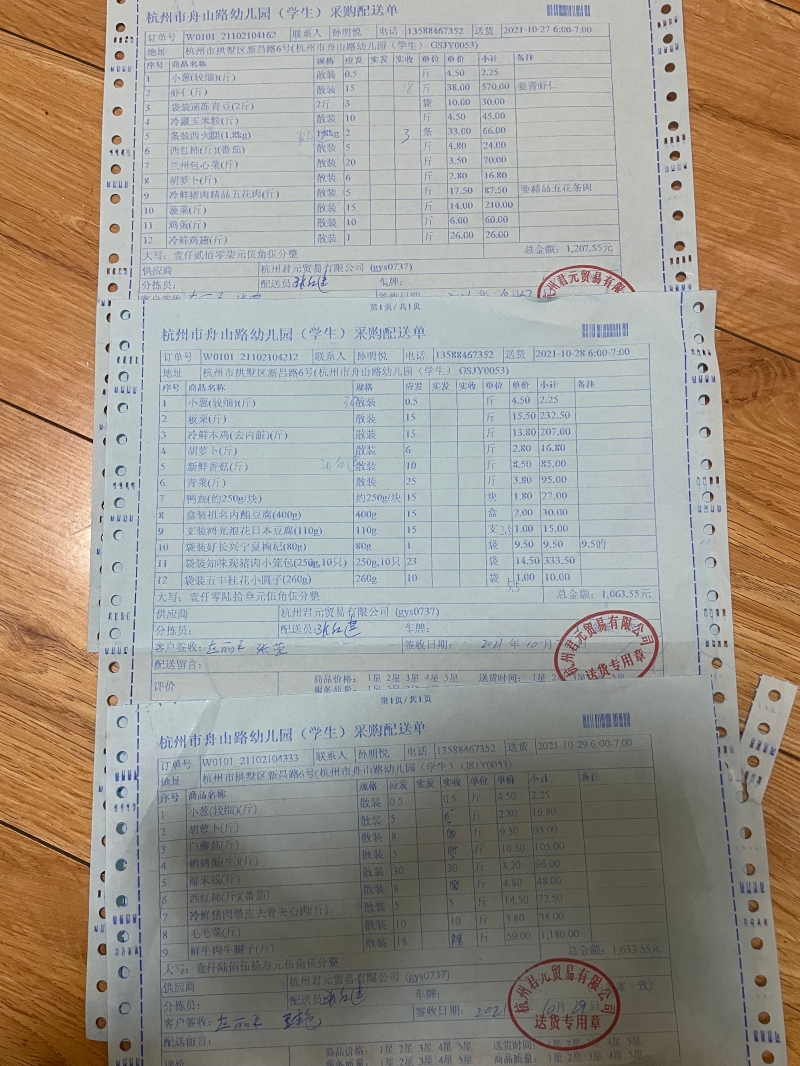 杭州市舟山路幼儿园（学生）采购配送单
订单号 W0101_21102104162 联系人 孙明悦 电话 13588467352 送货 2021-10-27 6:00-7:00
地址 杭州市拱墅区新昌路6号(杭州市舟山路幼儿园（学生）GSJY0053)
序号 商品名称 规格 应发 实发 实收 单位 单价 小计 备注
1 小葱(较细)(斤) 散装 0.5 斤 4.50 2.25
2 虾仁(斤) 散装 15 斤 38.00 570.00 要青虾仁
3 袋装速冻青豆(2斤) 2斤 3 袋 10.00 30.00
4 冷藏玉米粒(斤) 散装 10 斤 4.50 45.00
5 条装西火腿(1.8kg) 1.8kg 2 3 条 33.00 66.00
6 西红柿(斤)(番茄) 散装 5 斤 4.80 24.00
7 兰州包心菜(斤) 散装 20 斤 3.50 70.00
8 胡萝卜(斤) 散装 6 斤 2.80 16.80
9 冷鲜猪肉精品五花肉(斤) 散装 5 斤 17.50 87.50 要精品五花条肉
10 菠菜(斤) 散装 15 斤 14.00 210.00
11 鸡条(斤) 散装 10 斤 6.00 60.00
12 冷鲜鸡翅(斤) 散装 1 斤 26.00 26.00
大写：壹仟贰佰零柒元伍角伍分整 总金额：1,207.55元
供应商 杭州君元贸易有限公司 (gys0737)
分拣员： 配送员 车牌：
客户签收： 签收日期：
第1页/共1页
杭州市舟山路幼儿园（学生）采购配送单
订单号 W0101_21102104212 联系人 孙明悦 电话 13588467352 送货 2021-10-28 6:00-7:00
地址 杭州市拱墅区新昌路6号(杭州市舟山路幼儿园（学生）GSJY0053)
序号 商品名称 规格 应发 实发 实收 单位 单价 小计 备注
1 小葱(较细)(斤) 散装 0.5 斤 4.50 2.25
2 板栗(斤) 散装 15 斤 15.50 232.50
3 冷鲜本鸡(去内脏)(斤) 散装 15 斤 13.80 207.00
4 胡萝卜(斤) 散装 6 斤 2.80 16.80
5 新鲜香菇(斤) 散装 10 斤 8.50 85.00
6 青菜(斤) 散装 25 斤 3.80 95.00
7 鸭血(约250g/块) 约250g/块 15 块 1.80 27.00
8 盒装祖名内酯豆腐(400g) 400g 15 盒 2.00 30.00
9 支装鸿光浪花日本豆腐(110g) 110g 15 支 1.00 15.00
10 袋装好长兴宁夏枸杞(80g) 80g 1 袋 9.50 9.50 9.5的
11 袋装知味观猪肉小笼包(250g,10只) 250g,10只 23 袋 14.50 333.50
12 袋装五丰桂花小圆子(260g) 260g 10 袋 1.00 10.00
大写：壹仟零陆拾叁元伍角伍分整 总金额：1,063.55元
供应商 杭州君元贸易有限公司 (gys0737)
分拣员： 配送员 车牌：
客户签收： 签收日期： 2021 年 10 月
配送留言：
评价 商品价格： 1星 2星 3星 4星 5星 送货时间： 1星
杭州君元贸易有限公司
送货专用章
第1页/共1页
杭州市舟山路幼儿园（学生）采购配送单
订单号 W0101_21102104333 联系人 孙明悦 电话 13588467352 送货 2021-10-29 6:00-7:00
地址 杭州市拱墅区新昌路6号(杭州市舟山路幼儿园（学生）GSJY0053)
序号 商品名称 规格 应发 实发 实收 单位 单价 小计 备注
1 小葱(较细)(斤) 散装 0.5 0.5 斤 4.50 2.25
2 胡萝卜(斤) 散装 5 斤 2.80 16.80
3 白蘑菇(斤) 散装 8 斤 9.50 95.00
4 鹌鹑蛋(生)(斤) 散装 5 斤 10.50 105.00
5 散装 30 30 斤 3.20 96.00
6 西红柿(斤)(番茄) 散装 8 斤 4.80 48.00
7 冷鲜猪肉带皮去骨夹心肉(斤) 散装 5 5 斤 14.50 72.50
8 毛毛菜(斤) 散装 10 10 斤 3.80 38.00
9 鲜牛肉牛腱子(斤) 散装 18 斤 59.00 1,180.00
大写：壹仟陆佰伍拾叁元伍角伍分整 总金额：1,653.55元
供应商 杭州君元贸易有限公司 (gys0737)
分拣员： 配送员 车牌：
客户签收： 签收日期： 2021 10月 29日
配送留言：
商品价格： 1星 2星 3星 4星 5星 送货时间： 2星 3星 4星 5星
杭州君元贸易有限公司
送货专用章